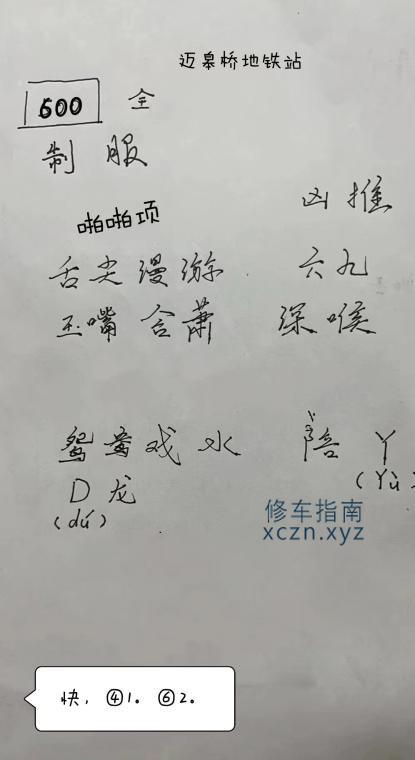 迈皋桥地铁站
600 全
制服
啪啪项 凶推
舌尖漫游 六九
玉嘴含萧 深喉
鸳鸯戏水 陪 丫
(Yù)
D龙
(dú)
修车指南
xczn.xyz
快，④1。⑥2。